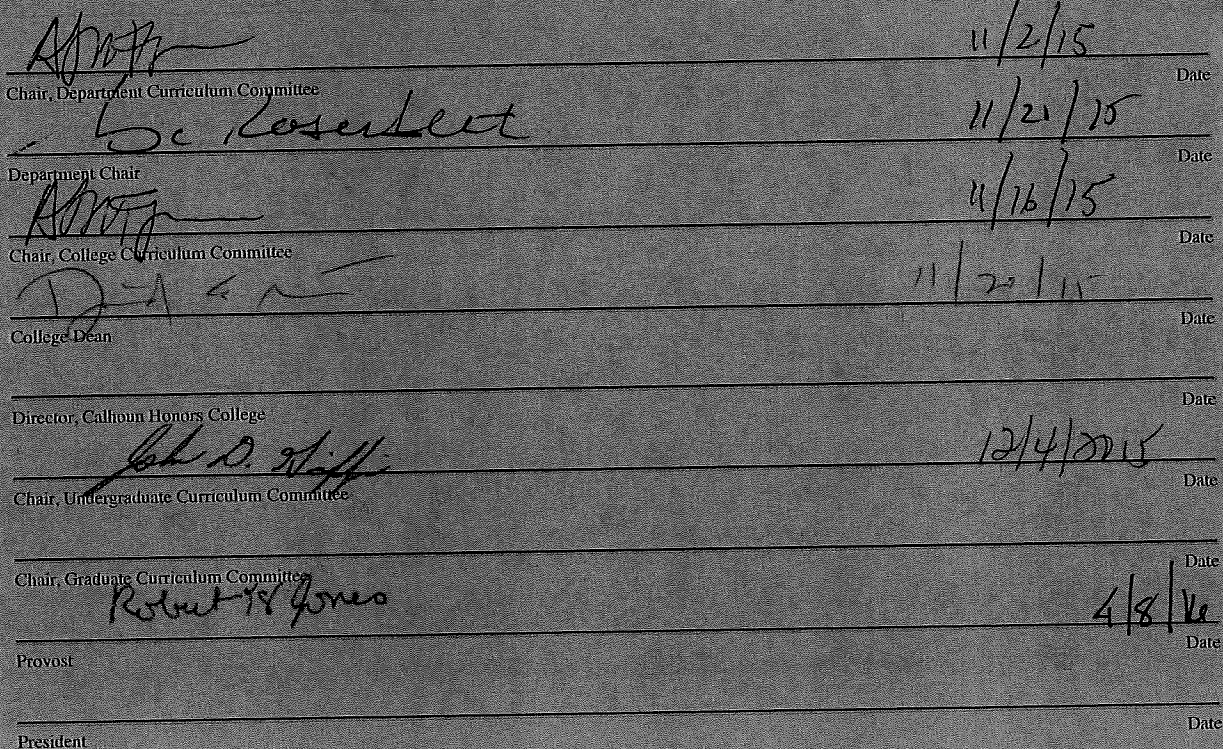 11/2/15
Chair, Department Curriculum Committee Date
11/21/15
Department Chair Date
11/16/15
Chair, College Curriculum Committee Date
11/20/15
College Dean Date
Director, Calhoun Honors College Date
John D. Griffin 12/4/2015
Chair, Undergraduate Curriculum Committee Date
Chair, Graduate Curriculum Committee Date
Robert H Jones 4/8/16
Provost Date
President Date